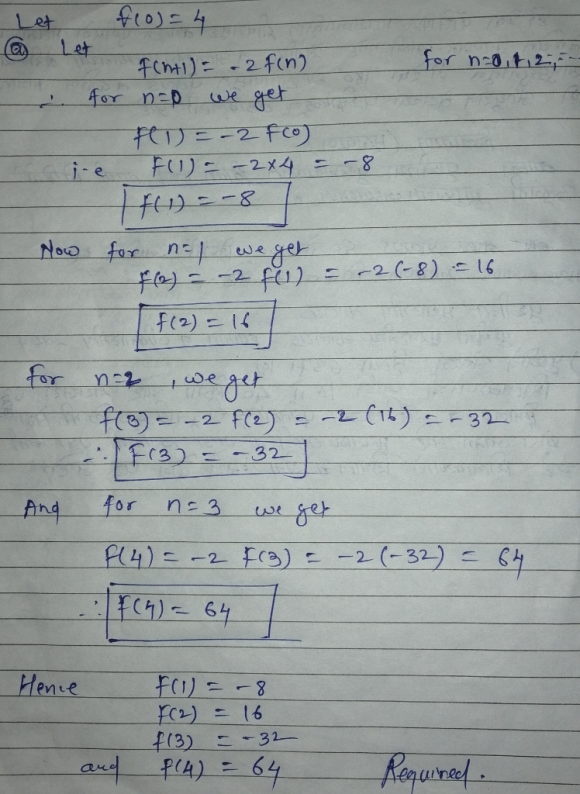 Let f(0) = 4
(a) Let
f(n+1) = -2 f(n) for n=0,1,2,...
∴ for n=0 we get
f(1) = -2 f(0)
i-e f(1) = -2×4 = -8
f(1) = -8
Now for n=1 we get
f(2) = -2 f(1) = -2(-8) = 16
f(2) = 16
for n=2, we get
f(3) = -2 f(2) = -2(16) = -32
∴ f(3) = -32
And for n=3 we get
f(4) = -2 f(3) = -2(-32) = 64
∴ f(4) = 64
Hence f(1) = -8
f(2) = 16
f(3) = -32
and f(4) = 64 Required.